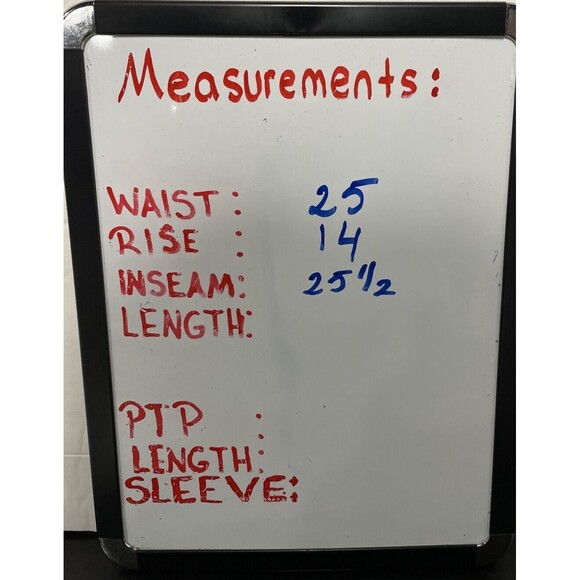 Measurements:
WAIST: 25
RISE : 14
INSEAM: 25 1/2
LENGTH:
PTP :
LENGTH:
SLEEVE: